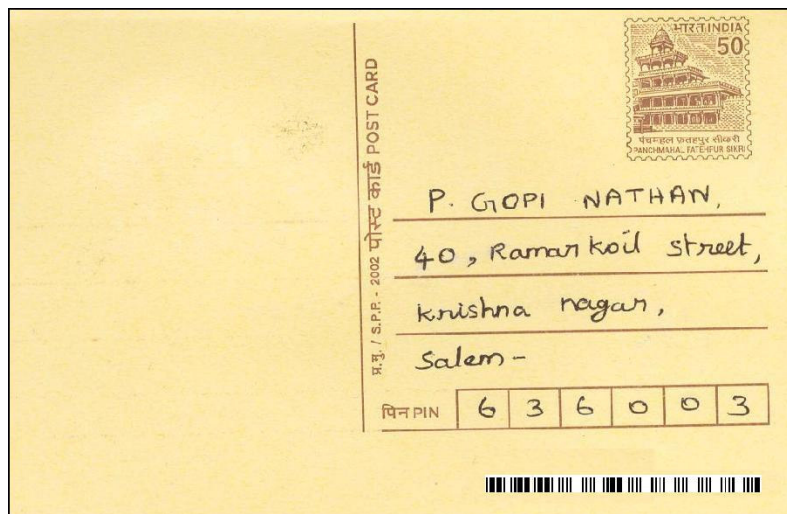 भारत INDIA
50
पंचमहल फ़तहपुर सीकरी
PANCHMAHAL FATEHPUR SIKRI
प्र.मु. / S.P.P. - 2002 पोस्ट कार्ड POST CARD
P. GOPI NATHAN,
40, Ramar koil street,
krishna nagar,
Salem -
पिन PIN 6 3 6 0 0 3